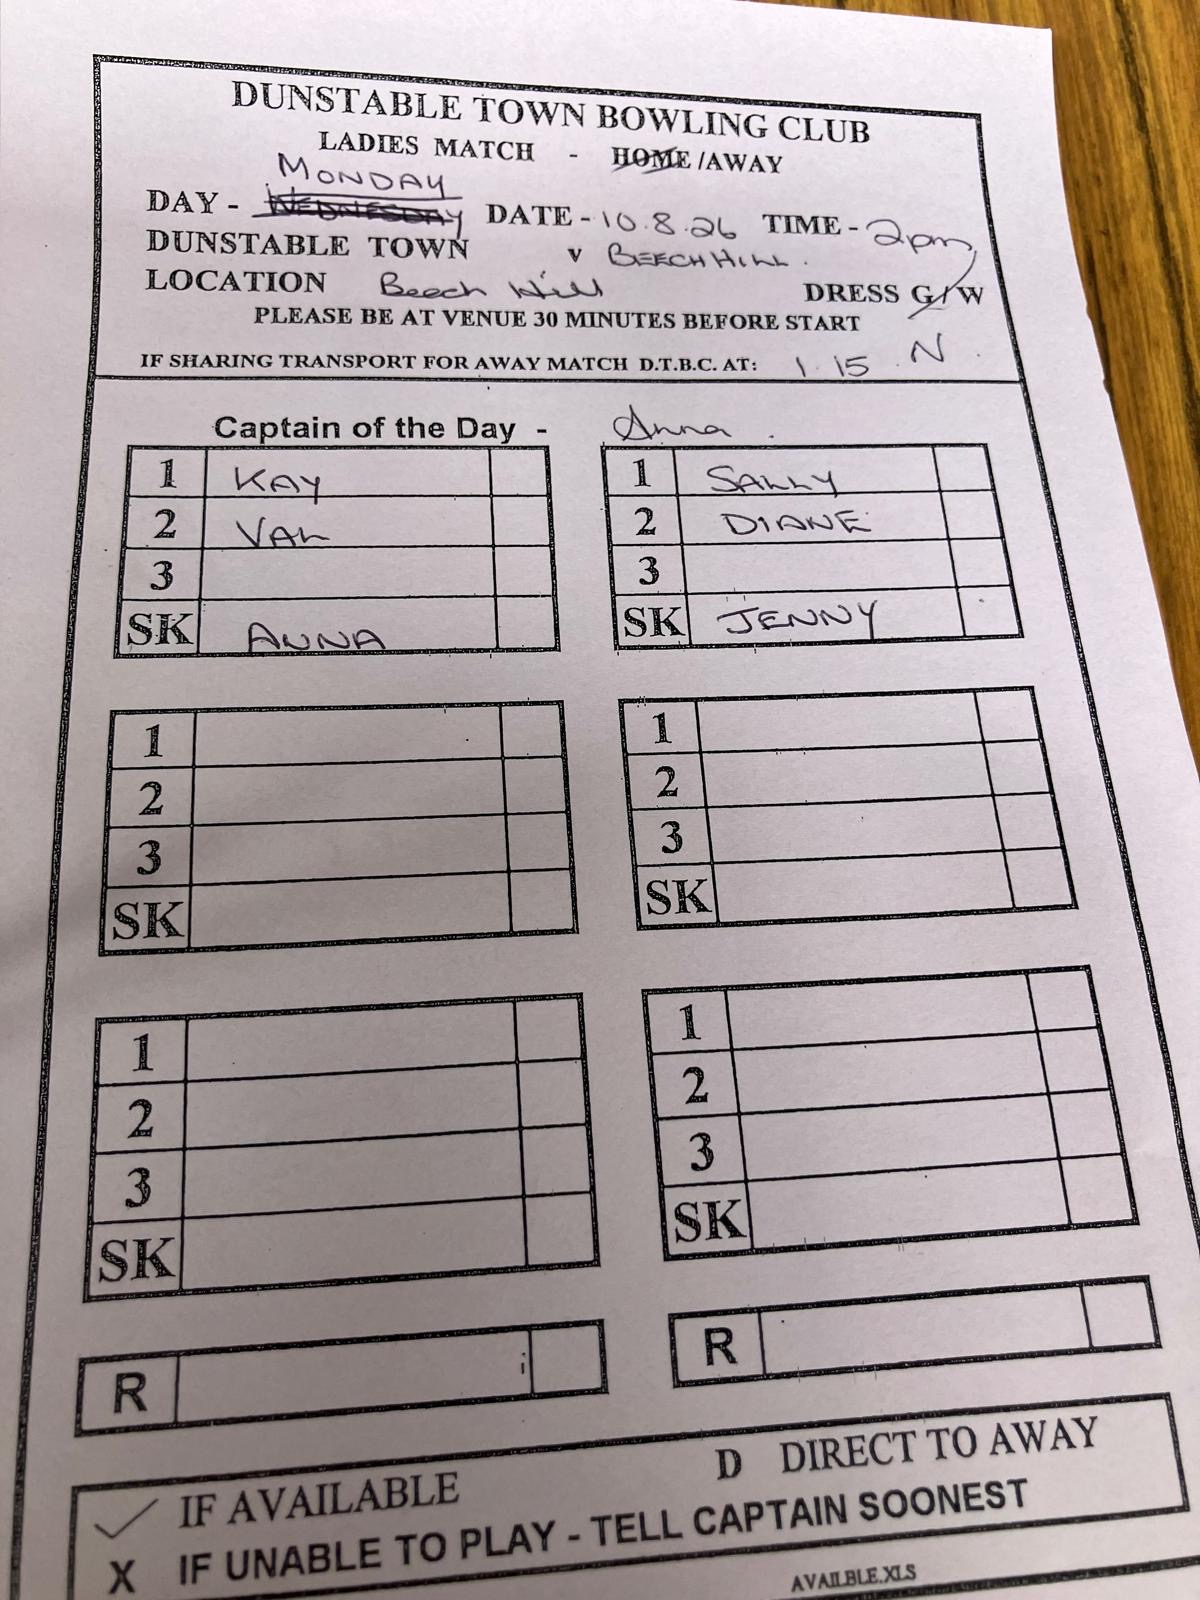 DUNSTABLE TOWN BOWLING CLUB
LADIES MATCH - HOME /AWAY
MONDAY
DAY - WEDNESDAY DATE - 10.8.26 TIME - 2pm
DUNSTABLE TOWN v BEECH HILL.
LOCATION Beech Hill DRESS G/W
PLEASE BE AT VENUE 30 MINUTES BEFORE START
N
IF SHARING TRANSPORT FOR AWAY MATCH D.T.B.C. AT: 1.15
Captain of the Day - Anna.
1 KAY 1 SALLY
2 VAL 2 DIANE
3 3
SK ANNA SK JENNY
1 1
2 2
3 3
SK SK
1 1
2 2
3 3
SK SK
R R
✓ IF AVAILABLE D DIRECT TO AWAY
X IF UNABLE TO PLAY - TELL CAPTAIN SOONEST
AVAILBLE.XLS